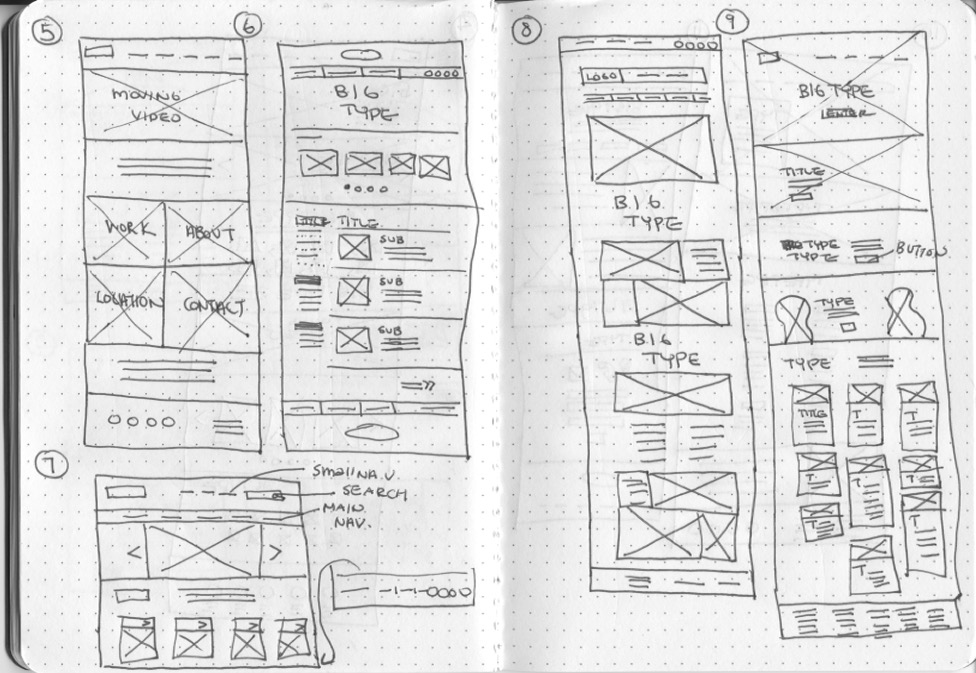 5
MOVING
VIDEO
WORK
ABOUT
LOCATION
CONTACT
6
BIG
TYPE
TITLE
TITLE
SUB
SUB
SUB
7
Small NAV.
SEARCH
MAIN
NAV.
8
LOGO
BIG
TYPE
BIG
TYPE
9
BIG TYPE
CENTER
TITLE
BIG TYPE
TYPE
BUTTON
TYPE
TYPE
TITLE
T
T
T
T
T
T
T
T